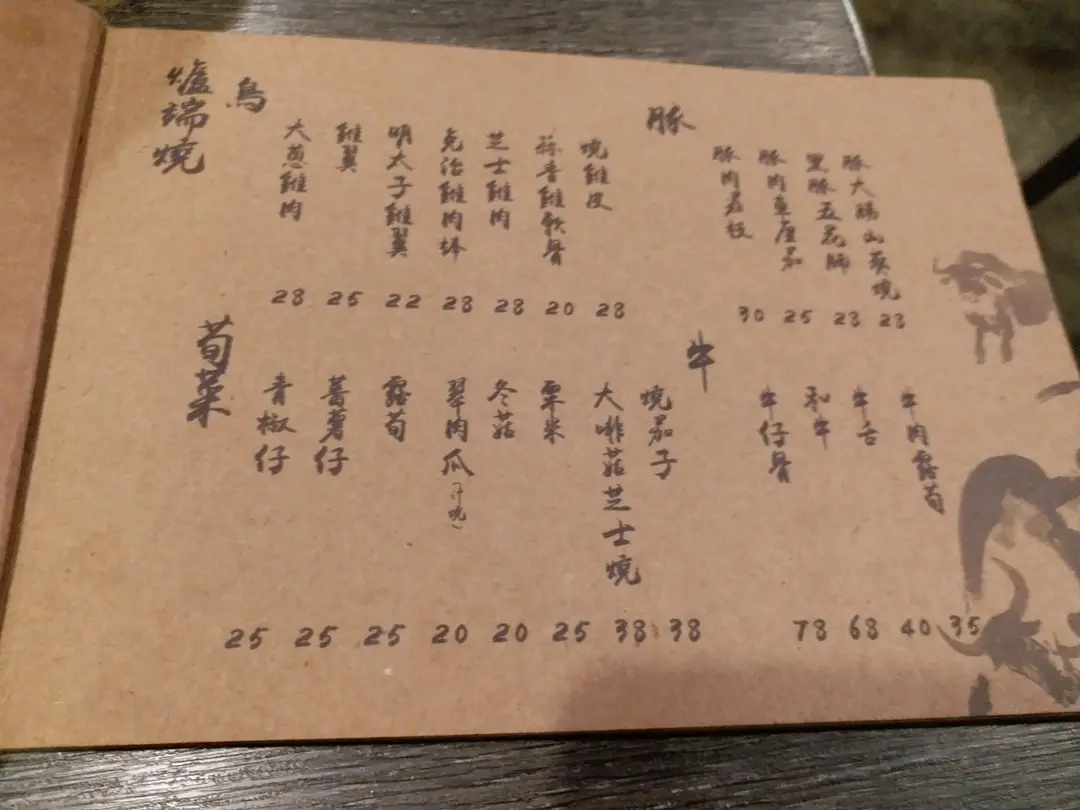 爐端燒
鳥
大葱雞肉
雞翼
明太子雞翼
免治雞肉棒
芝士雞肉
蒜香雞軟骨
燒雞皮
28 25 22 28 28 20 28
豚
豚肉荔枝
豚肉車厘茄
黑豚五花腩
豚大腸山葵燒
30 25 28 28
荀菜
青椒仔
蕃薯仔
露荀
翠肉瓜(汁燒)
冬菇
粟米
大啡菇芝士燒
燒茄子
25 25 25 20 20 25 38 38
牛
牛仔骨
和牛
牛舌
牛肉露荀
78 68 40 35